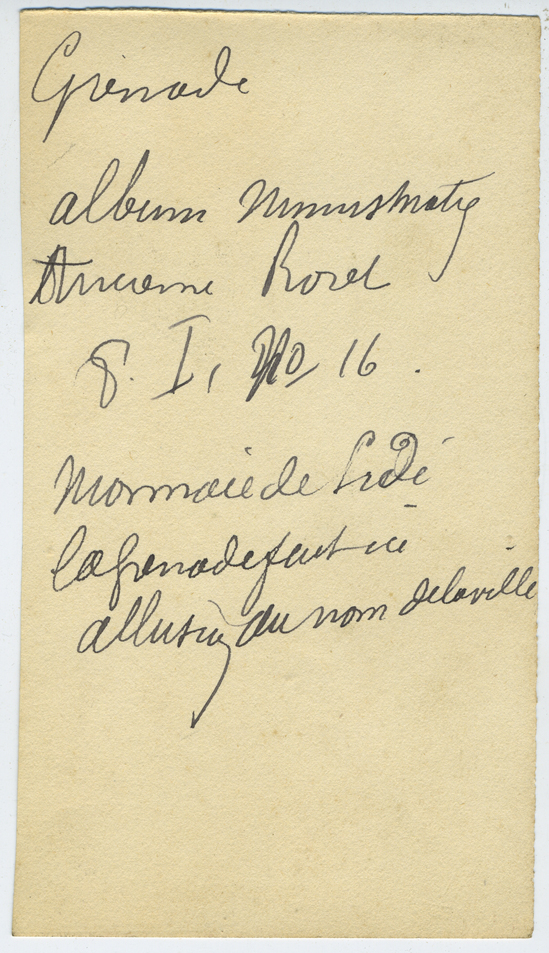 Grenade
album Numismatiq
Ancienne Roret
8. I, No 16.
Monnaie de Sidé
la Grenade fait ici
allusion au nom de la ville